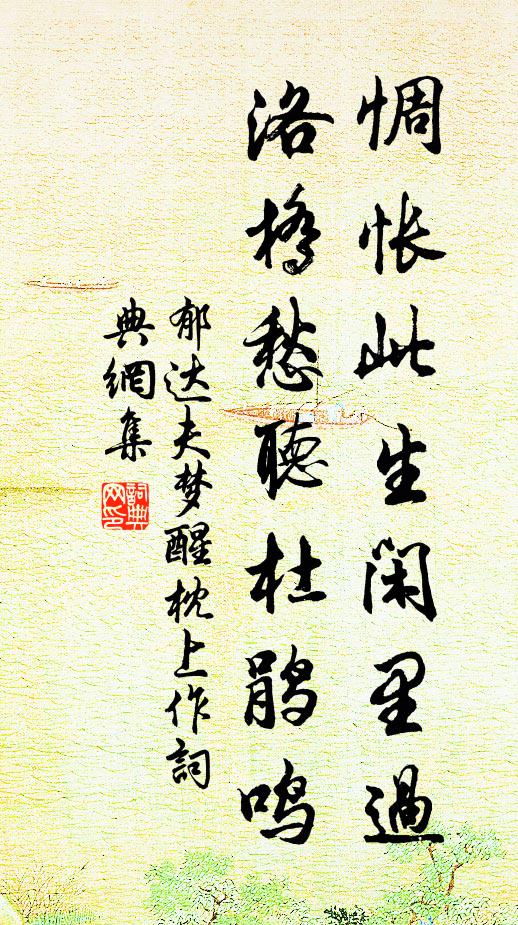 惆怅此生闲里過
洛橋愁聽杜鹃鸣
郁达夫梦醒枕上作詞
典網集
詞典
网印